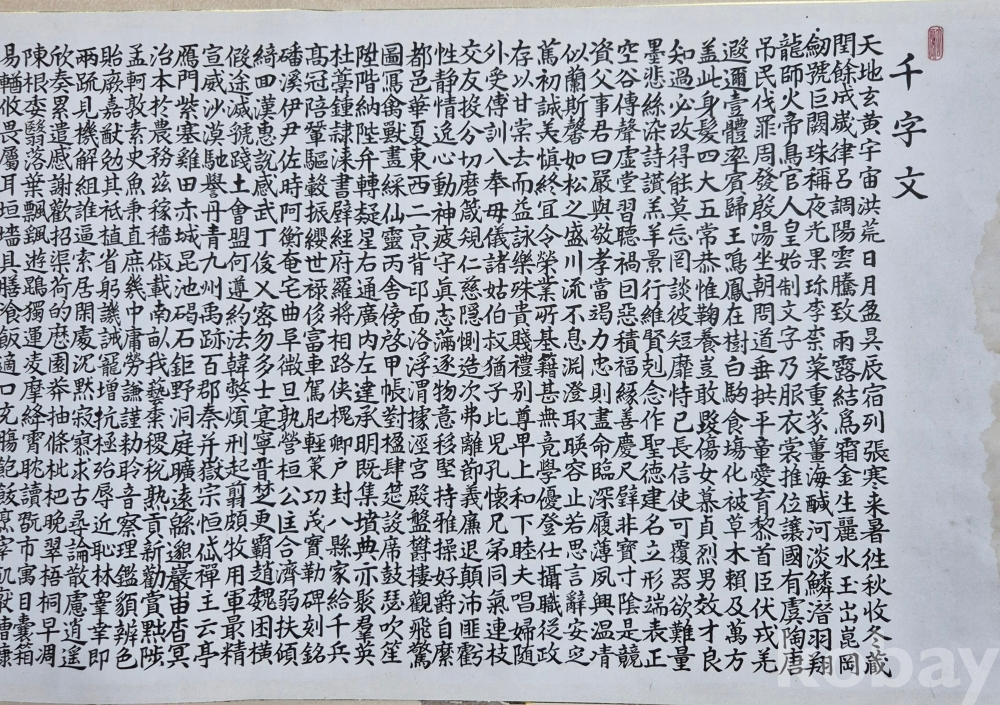 千字文
天地玄黃宇宙洪荒日月盈昃辰宿列張寒来暑徃秋收冬蔵
閏餘成歲律呂調陽雲騰致雨露結爲霜金生麗水玉出崑岡
劒號巨闕珠稱夜光果珎李柰菜重芥薑海鹹河淡鱗潛羽翔
龍師火帝鳥官人皇始制文字乃服衣裳推位讓國有虞陶唐
吊民伐罪周發殷湯坐朝問道垂拱平章愛育黎首臣伏戎羌
遐邇壹體率賓歸王鳴鳳在樹白駒食場化被草木賴及萬方
盖此身髮四大五常恭惟鞠養豈敢毀傷女慕貞烈男效才良
知過必改得能莫忘罔談彼短靡恃己長信使可覆器欲難量
墨悲絲染詩讃羔羊景行維賢剋念作聖德建名立形端表正
空谷傳聲虛堂習聽禍因惡積福緣善慶尺璧非寶寸陰是競
資父事君曰嚴與敬孝當竭力忠則盡命臨深履薄夙興溫凊
似蘭斯馨如松之盛川流不息淵澄取暎容止若思言辭安定
篤初誠美慎終冝令榮業所基籍甚無竟學優登仕攝職從政
存以甘棠去而益詠樂殊貴賤禮别尊卑上和下睦夫唱婦随
外受傅訓入奉母儀諸姑伯叔猶子比兒孔懷兄弟同氣連枝
交友投分切磨箴規仁慈隱惻造次弗離節義廉退顛沛匪虧
性静情逸心動神疲守眞志滿逐物意移堅持雅操好爵自縻
都邑華夏東西二京背邙面洛浮渭據涇宮殿盤鬱樓觀飛驚
圖寫禽獸畫綵仙靈丙舍傍啓甲帳對楹肆筵設席鼓瑟吹笙
陞階納陛弁轉疑星右通廣内左達承明既集墳典亦聚羣英
杜藁鍾隷漆書壁經府羅將相路俠槐卿户封八縣家給千兵
髙冠陪輦驅轂振纓世禄侈富車駕肥輕策功茂實勒碑刻銘
磻溪伊尹佐時阿衡奄宅曲阜微旦孰營桓公匡合濟弱扶傾
綺回漢惠説感武丁俊乂密勿多士寔寧晋楚更霸趙魏困橫
假途滅虢踐土會盟何遵約法韓弊煩刑起翦頗牧用軍最精
宣威沙漠馳譽丹青九州禹跡百郡秦并嶽宗恒岱禪主云亭
雁門紫塞雞田赤城昆池碣石鉅野洞庭曠遠緜邈巖岫杳冥
治本於農務兹稼穡俶載南畝我藝黍稷稅熟貢新勸賞黜陟
孟軻敦素史魚秉直庶幾中庸勞謙謹勅聆音察理鑑貌辨色
貽厥嘉猷勉其祗植省躬譏誡寵增抗極殆辱近恥林皐幸即
兩疏見機解組誰逼索居閑處沉默寂寥求古尋論散慮逍遥
欣奏累遣慼謝歡招渠荷的歷園莽抽條枇杷晚翠梧桐早凋
陳根委翳落葉飄颻遊鵾獨運凌摩絳霄耽讀翫市寓目囊箱
易輶攸畏屬耳垣墻具膳飡飯適口充腸飽飫烹宰飢厭糟糠
Kobay